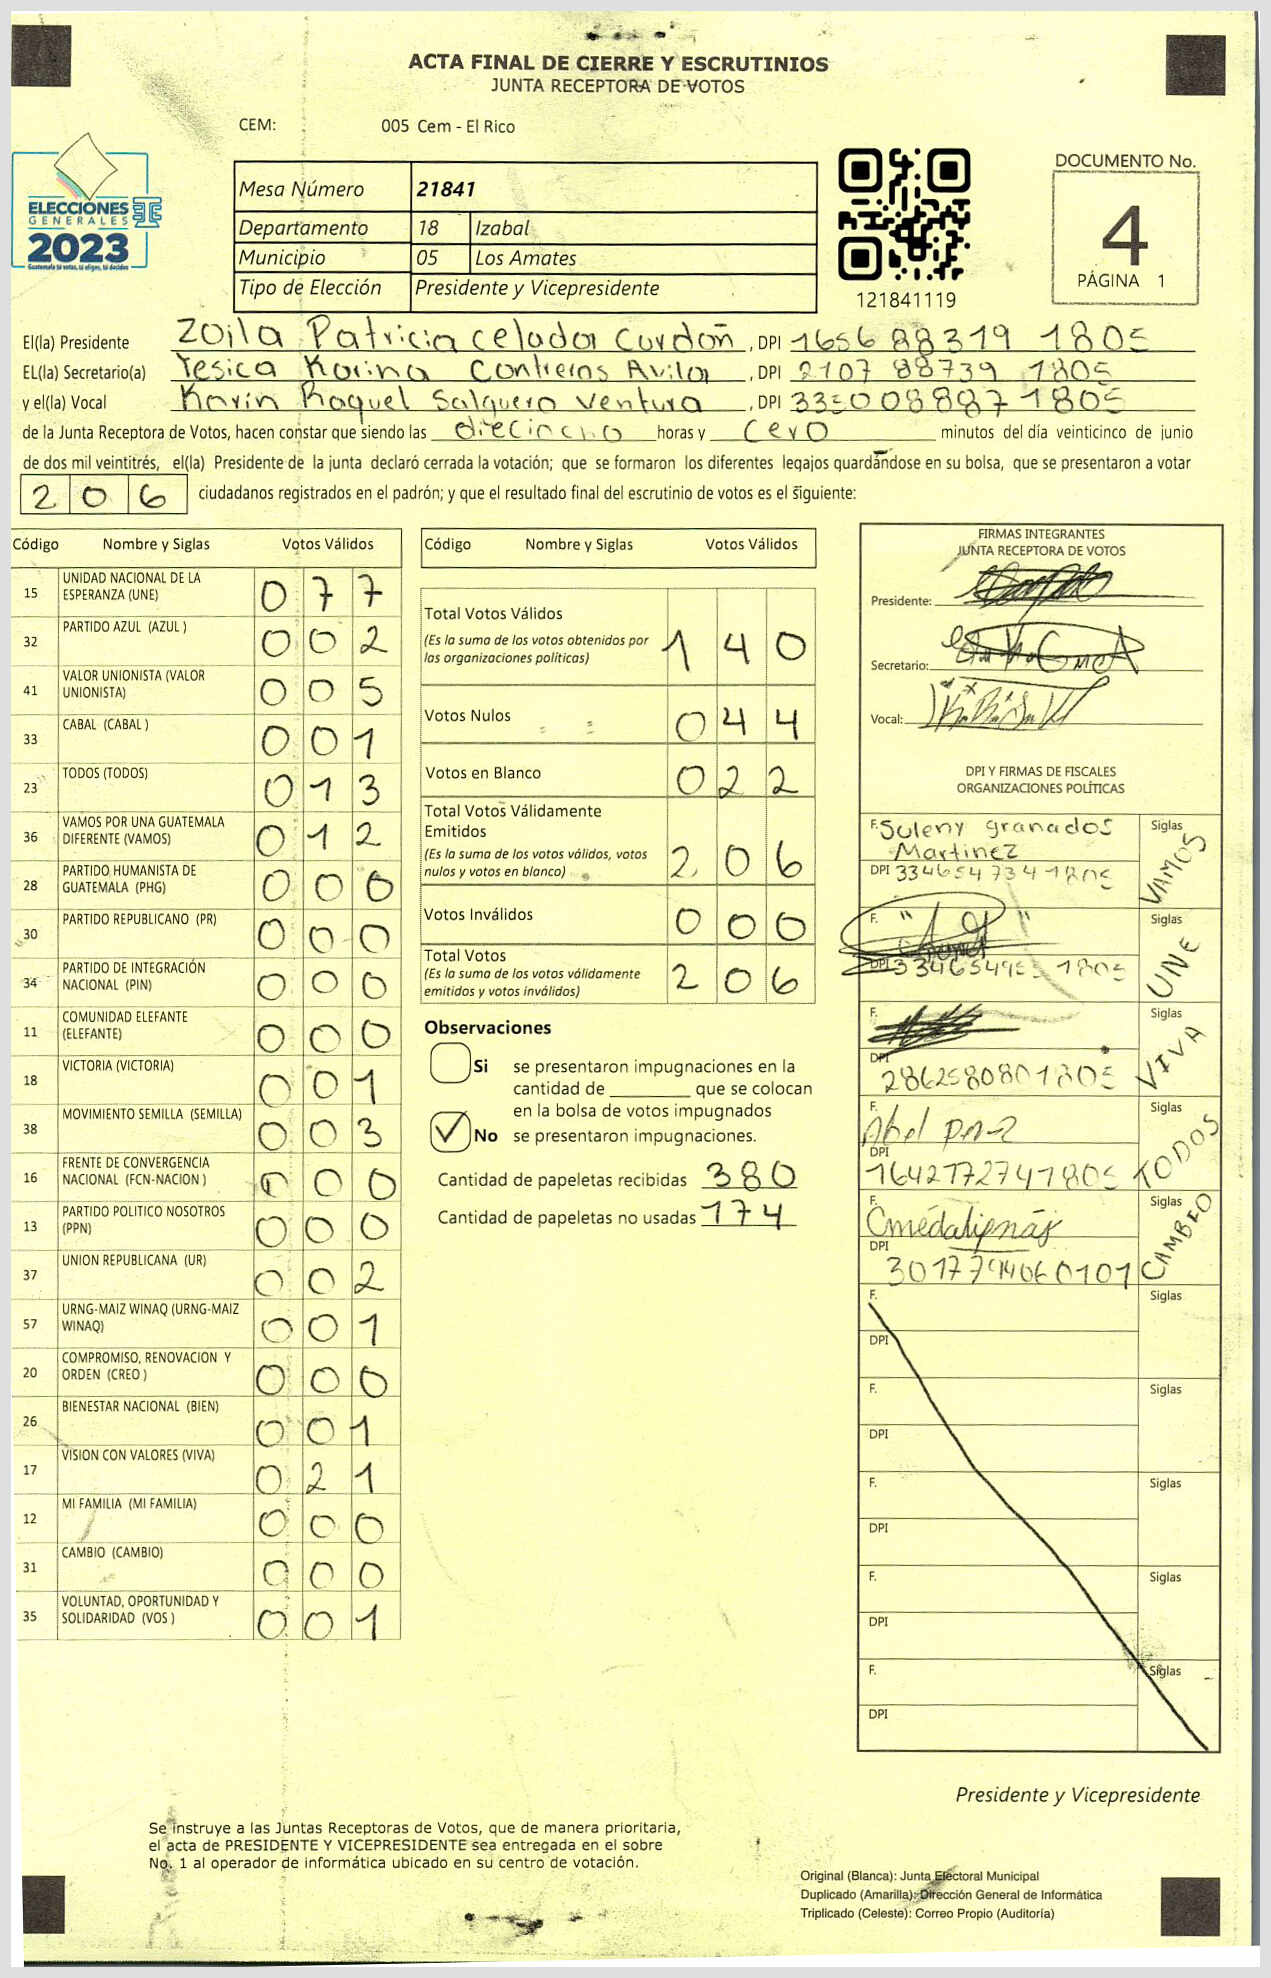 ACTA FINAL DE CIERRE Y ESCRUTINIOS
JUNTA RECEPTORA DE VOTOS
CEM: 005 Cem - El Rico
ELECCIONES
GENERALES
2023
Guatemala tú votas, tú eliges, tú decides
Mesa Número 21841
Departamento 18 Izabal
Municipio 05 Los Amates
Tipo de Elección Presidente y Vicepresidente
121841119
DOCUMENTO No.
4
PÁGINA 1
El(la) Presidente Zoila Patricia Celador Cordón, DPI 1656 88319 1805
EL(la) Secretario(a) Yesica Karina Contreras Avila, DPI 2107 88739 1805
y el(la) Vocal Karin Raquel Salguero Ventura, DPI 335008887 1805
de la Junta Receptora de Votos, hacen constar que siendo las horas y cero minutos del día veinticinco de junio
de dos mil veintitrés, el(la) Presidente de la junta declaró cerrada la votación; que se formaron los diferentes legajos guardándose en su bolsa, que se presentaron a votar
206 ciudadanos registrados en el padrón; y que el resultado final del escrutinio de votos es el siguiente:
Código Nombre y Siglas Votos Válidos
15 UNIDAD NACIONAL DE LA ESPERANZA (UNE) 077
32 PARTIDO AZUL (AZUL ) 002
41 VALOR UNIONISTA (VALOR UNIONISTA) 005
33 CABAL (CABAL ) 001
23 TODOS (TODOS) 013
36 VAMOS POR UNA GUATEMALA DIFERENTE (VAMOS) 012
28 PARTIDO HUMANISTA DE GUATEMALA (PHG) 000
30 PARTIDO REPUBLICANO (PR) 000
34 PARTIDO DE INTEGRACIÓN NACIONAL (PIN) 000
11 COMUNIDAD ELEFANTE (ELEFANTE) 000
18 VICTORIA (VICTORIA) 001
38 MOVIMIENTO SEMILLA (SEMILLA) 003
16 FRENTE DE CONVERGENCIA NACIONAL (FCN-NACION ) 000
13 PARTIDO POLITICO NOSOTROS (PPN) 000
37 UNION REPUBLICANA (UR) 002
57 URNG-MAIZ WINAQ (URNG-MAIZ WINAQ) 001
20 COMPROMISO, RENOVACION Y ORDEN (CREO ) 000
26 BIENESTAR NACIONAL (BIEN) 001
17 VISION CON VALORES (VIVA) 021
12 MI FAMILIA (MI FAMILIA) 000
31 CAMBIO (CAMBIO) 000
35 VOLUNTAD, OPORTUNIDAD Y SOLIDARIDAD (VOS ) 001
Código Nombre y Siglas Votos Válidos
Total Votos Válidos 140
(Es la suma de los votos obtenidos por
las organizaciones políticas)
Votos Nulos 044
Votos en Blanco 022
Total Votos Válidamente
Emitidos 206
(Es la suma de los votos válidos, votos
nulos y votos en blanco)
Votos Inválidos 000
Total Votos 206
(Es la suma de los votos válidamente
emitidos y votos inválidos)
Observaciones
Si se presentaron impugnaciones en la
cantidad de ________ que se colocan
en la bolsa de votos impugnados
No se presentaron impugnaciones.
Cantidad de papeletas recibidas 380
Cantidad de papeletas no usadas 174
FIRMAS INTEGRANTES
JUNTA RECEPTORA DE VOTOS
Presidente:
Secretario:
Vocal:
DPI Y FIRMAS DE FISCALES
ORGANIZACIONES POLÍTICAS
F. Suleny granados Siglas
Martinez VAMOS
DPI 334654734 1805
F. Siglas
DPI 1805 UNE
F. Siglas
DPI 286258080 1805 VIVA
F. Abel Siglas
DPI 164217274 1805 TODOS
F. Siglas
DPI CAMBIO
F. Siglas
DPI
F. Siglas
DPI
F. Siglas
DPI
F. Siglas
DPI
F. Siglas
DPI
Presidente y Vicepresidente
Se instruye a las Juntas Receptoras de Votos, que de manera prioritaria,
el acta de PRESIDENTE Y VICEPRESIDENTE sea entregada en el sobre
No. 1 al operador de informática ubicado en su centro de votación.
Original (Blanca): Junta Electoral Municipal
Duplicado (Amarilla): Dirección General de Informática
Triplicado (Celeste): Correo Propio (Auditoría)